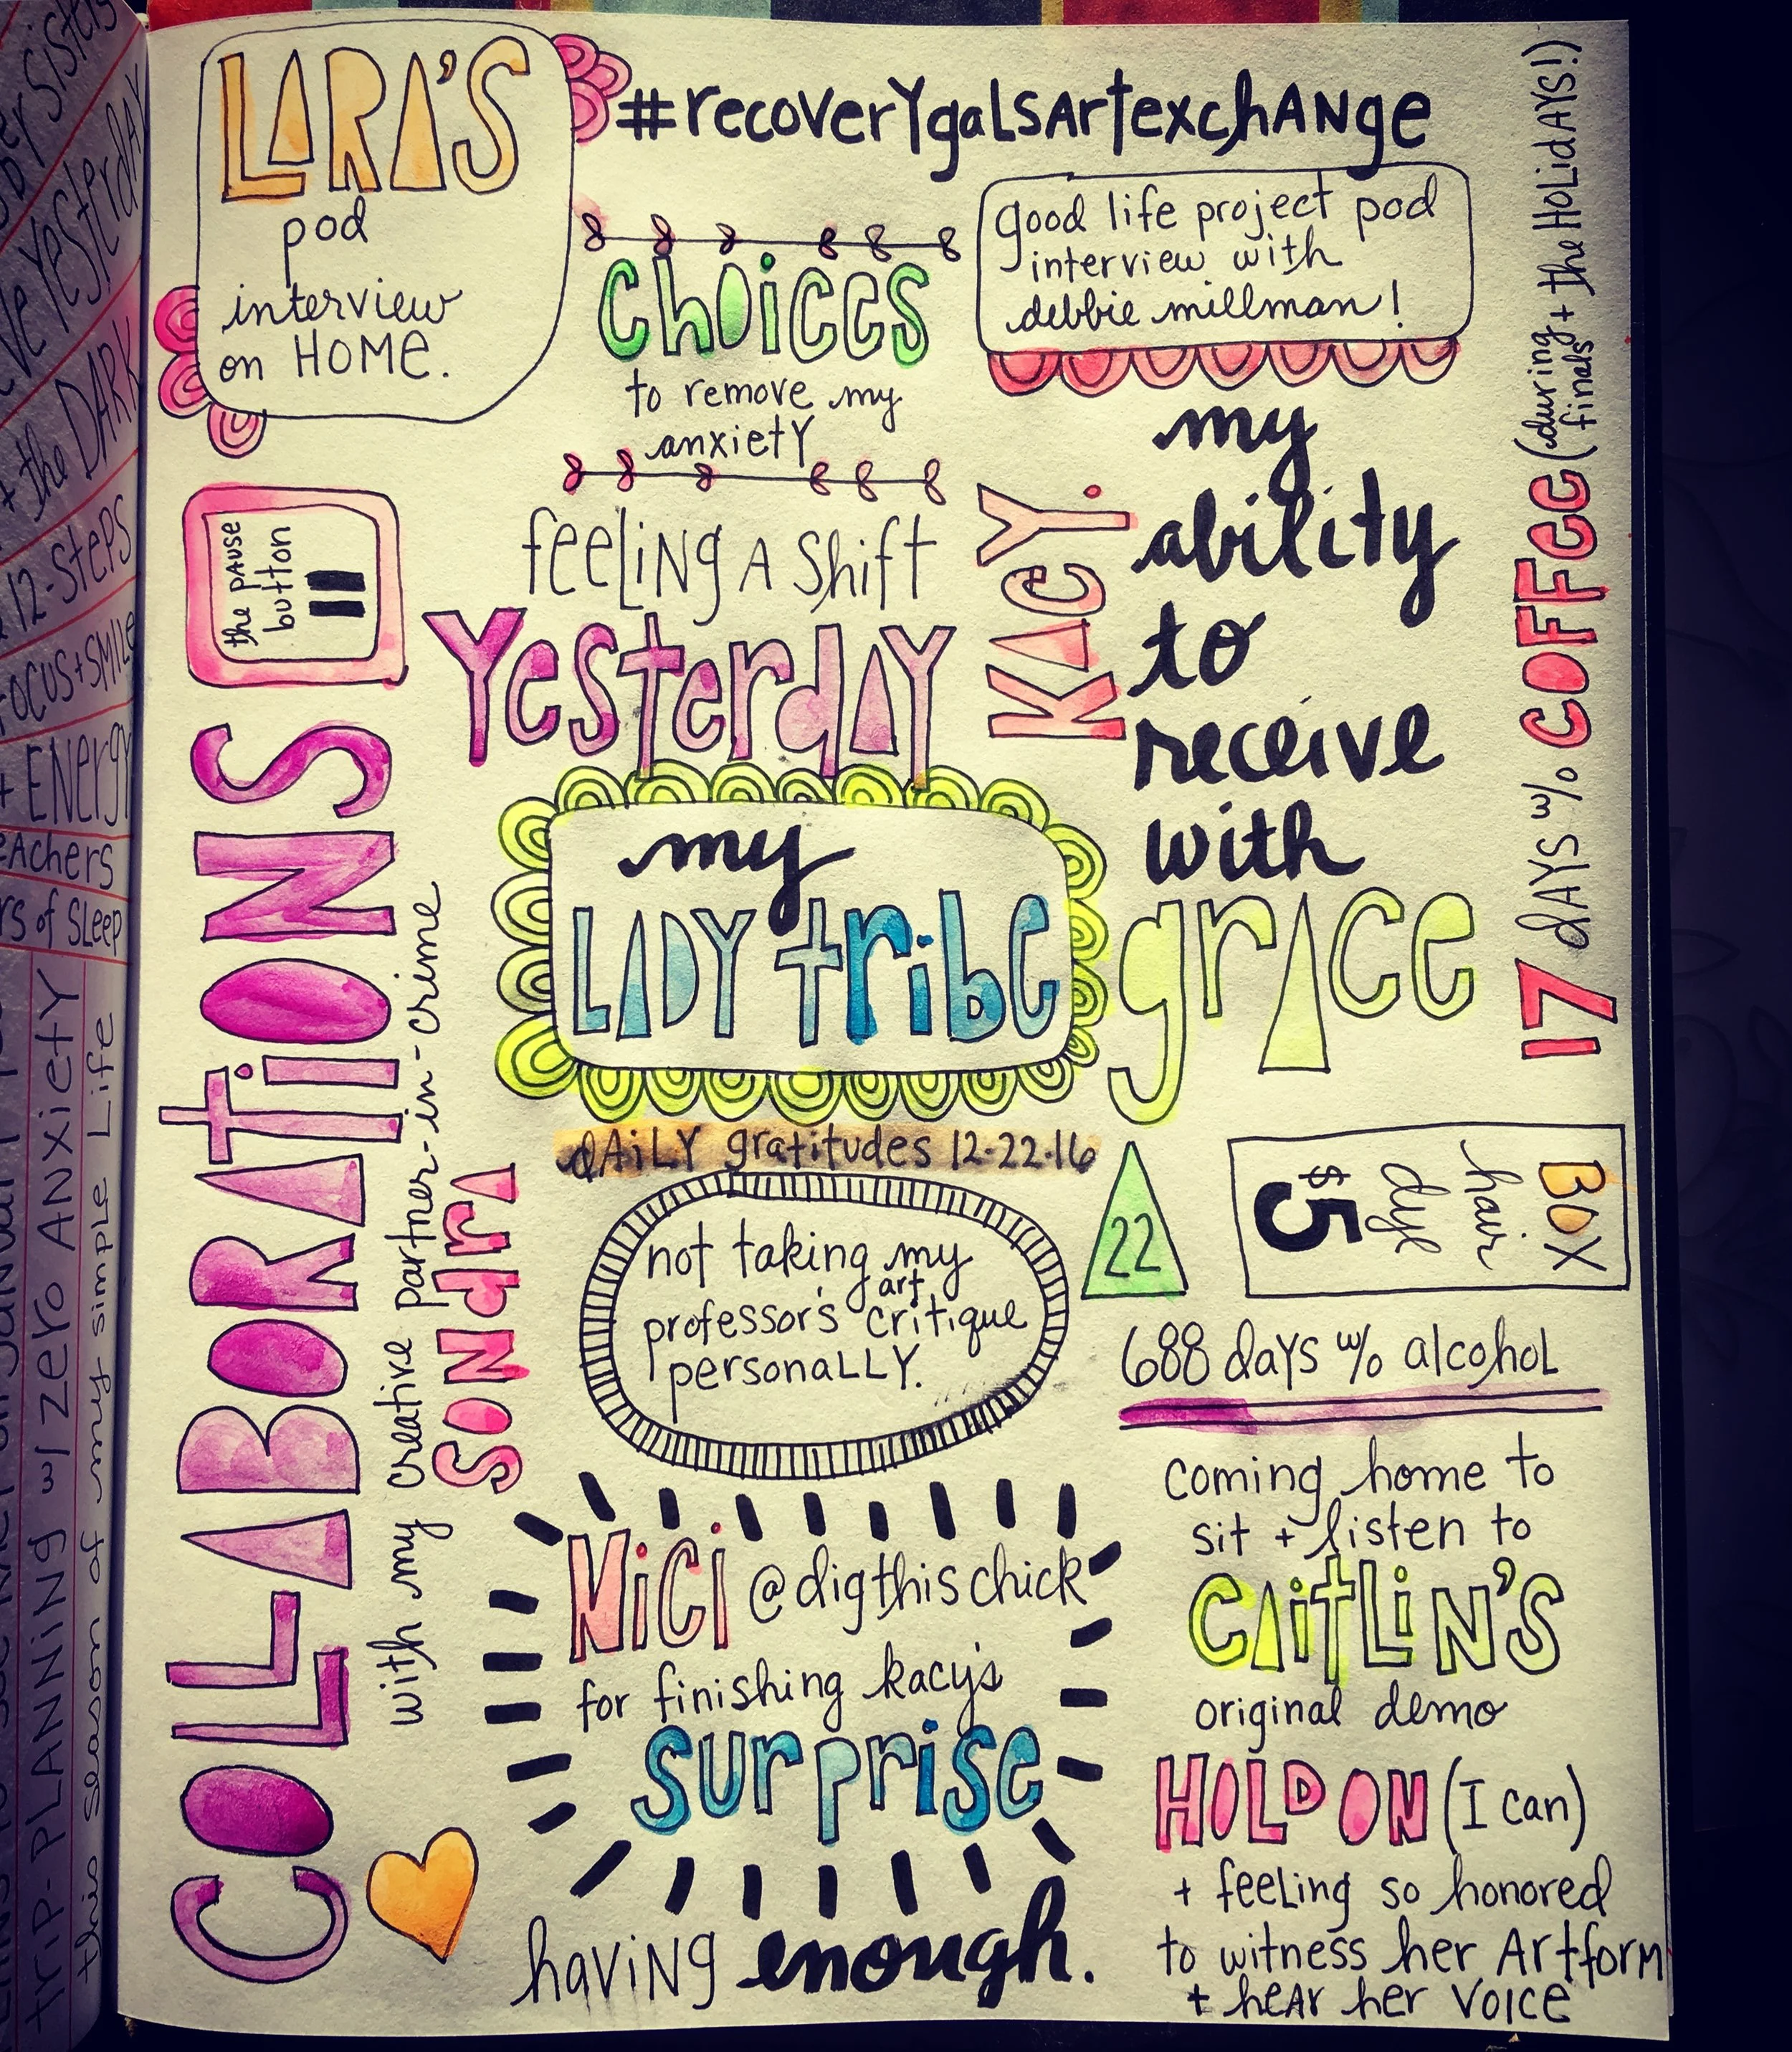 LARA'S
pod
interview
on HOME.
#recoverygalsartexchange
choices
to remove my
anxiety
good life project pod
interview with
debbie millman!
17 days w/o coffee (during finals + the holidays!)
the pause
button
feeling a shift
yesterday
KACY.
my
ability
to
receive
with
grace
my
LADY tribe
COLLABORATIONS
with my creative partner-in-crime
SONdRA
dAiLY gratitudes 12-22-16
not taking my
art
professor's critique
personaLLY.
22
BOX
hair
dye
$5
688 days w/o alcohol
NiCi @digthischick
for finishing kacy's
surprise
having enough.
coming home to
sit + listen to
CAitLiN'S
original demo
HOLD ON (I can)
+ feeling so honored
to witness her Artform
+ heAr her voice
+ the DARK
12-steps
focus + smile
+ ENergy
of sleep
trip-PLANNiNG w/ zero ANXiety
this season of my simple Life